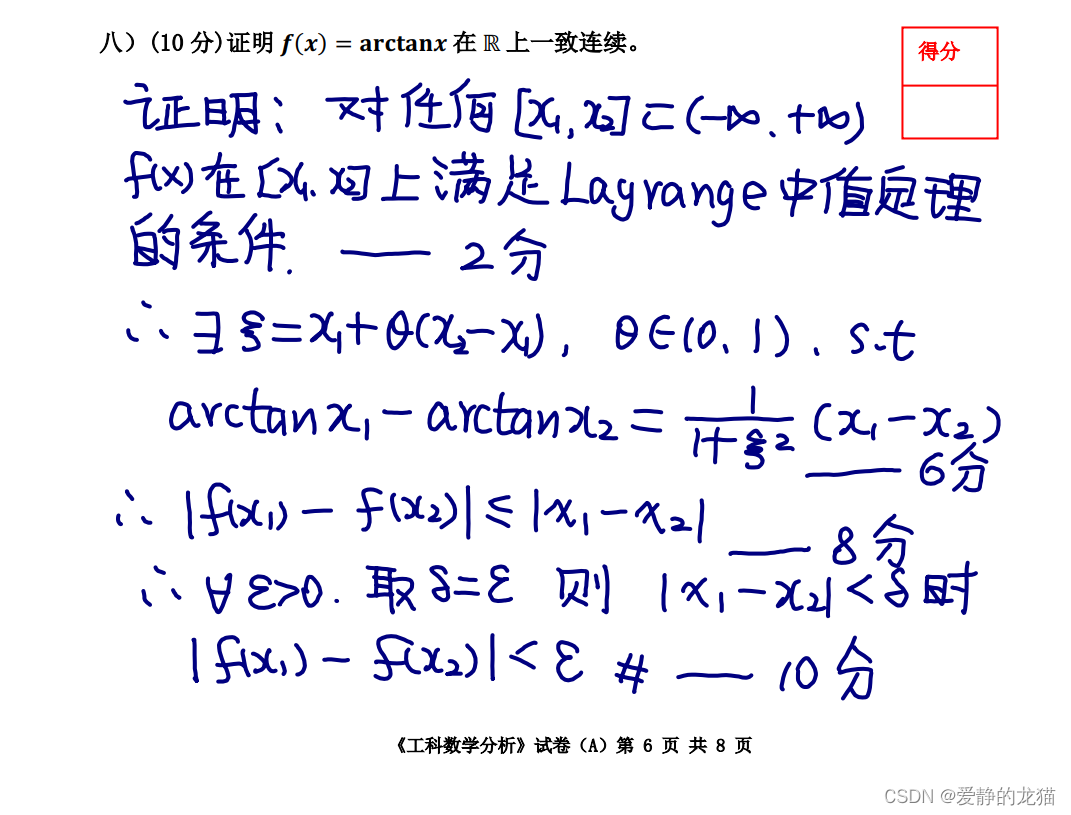 八）(10 分)证明 f(x) = arctanx 在 ℝ 上一致连续。
得分
证明：对任何 [x₁, x₂] ⊂ (-∞, +∞)
f(x) 在 [x₁, x₂] 上满足 Lagrange 中值定理
的条件. —— 2分
∴ ∃ ξ = x₁ + θ(x₂ - x₁), θ ∈ (0, 1), s.t
arctan x₁ - arctan x₂ = 1/(1+ξ²) (x₁ - x₂)
—— 6分
∴ |f(x₁) - f(x₂)| ≤ |x₁ - x₂|
—— 8分
∴ ∀ ε>0. 取 δ=ε 则 |x₁ - x₂| < δ 时
|f(x₁) - f(x₂)| < ε # —— 10分
《工科数学分析》试卷（A）第 6 页 共 8 页
CSDN @爱静的龙猫